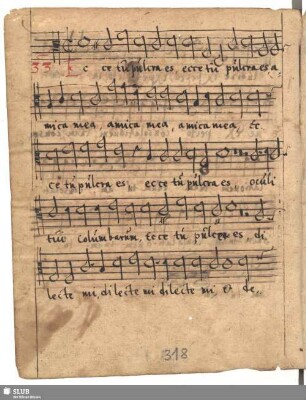 33. E c ce tu pulcra es, ecce tu pulcra es a
mica mea, amica mea, amica mea, Ec
ce tu pulcra es, ecce tu pulcra es, oculi
tui Columbarum, Ecce tu pulcer es, di
lecte mi, dilecte mi dilecte mi, et de,,
318
SLUB